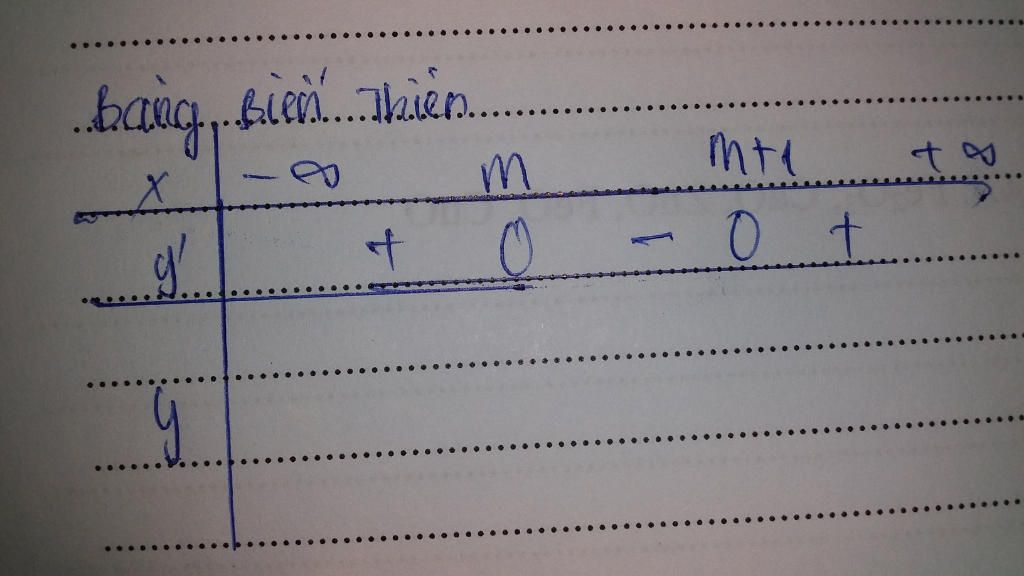 Bảng Biến Thiên
x -∞ m m+1 +∞
y' + 0 - 0 +
y